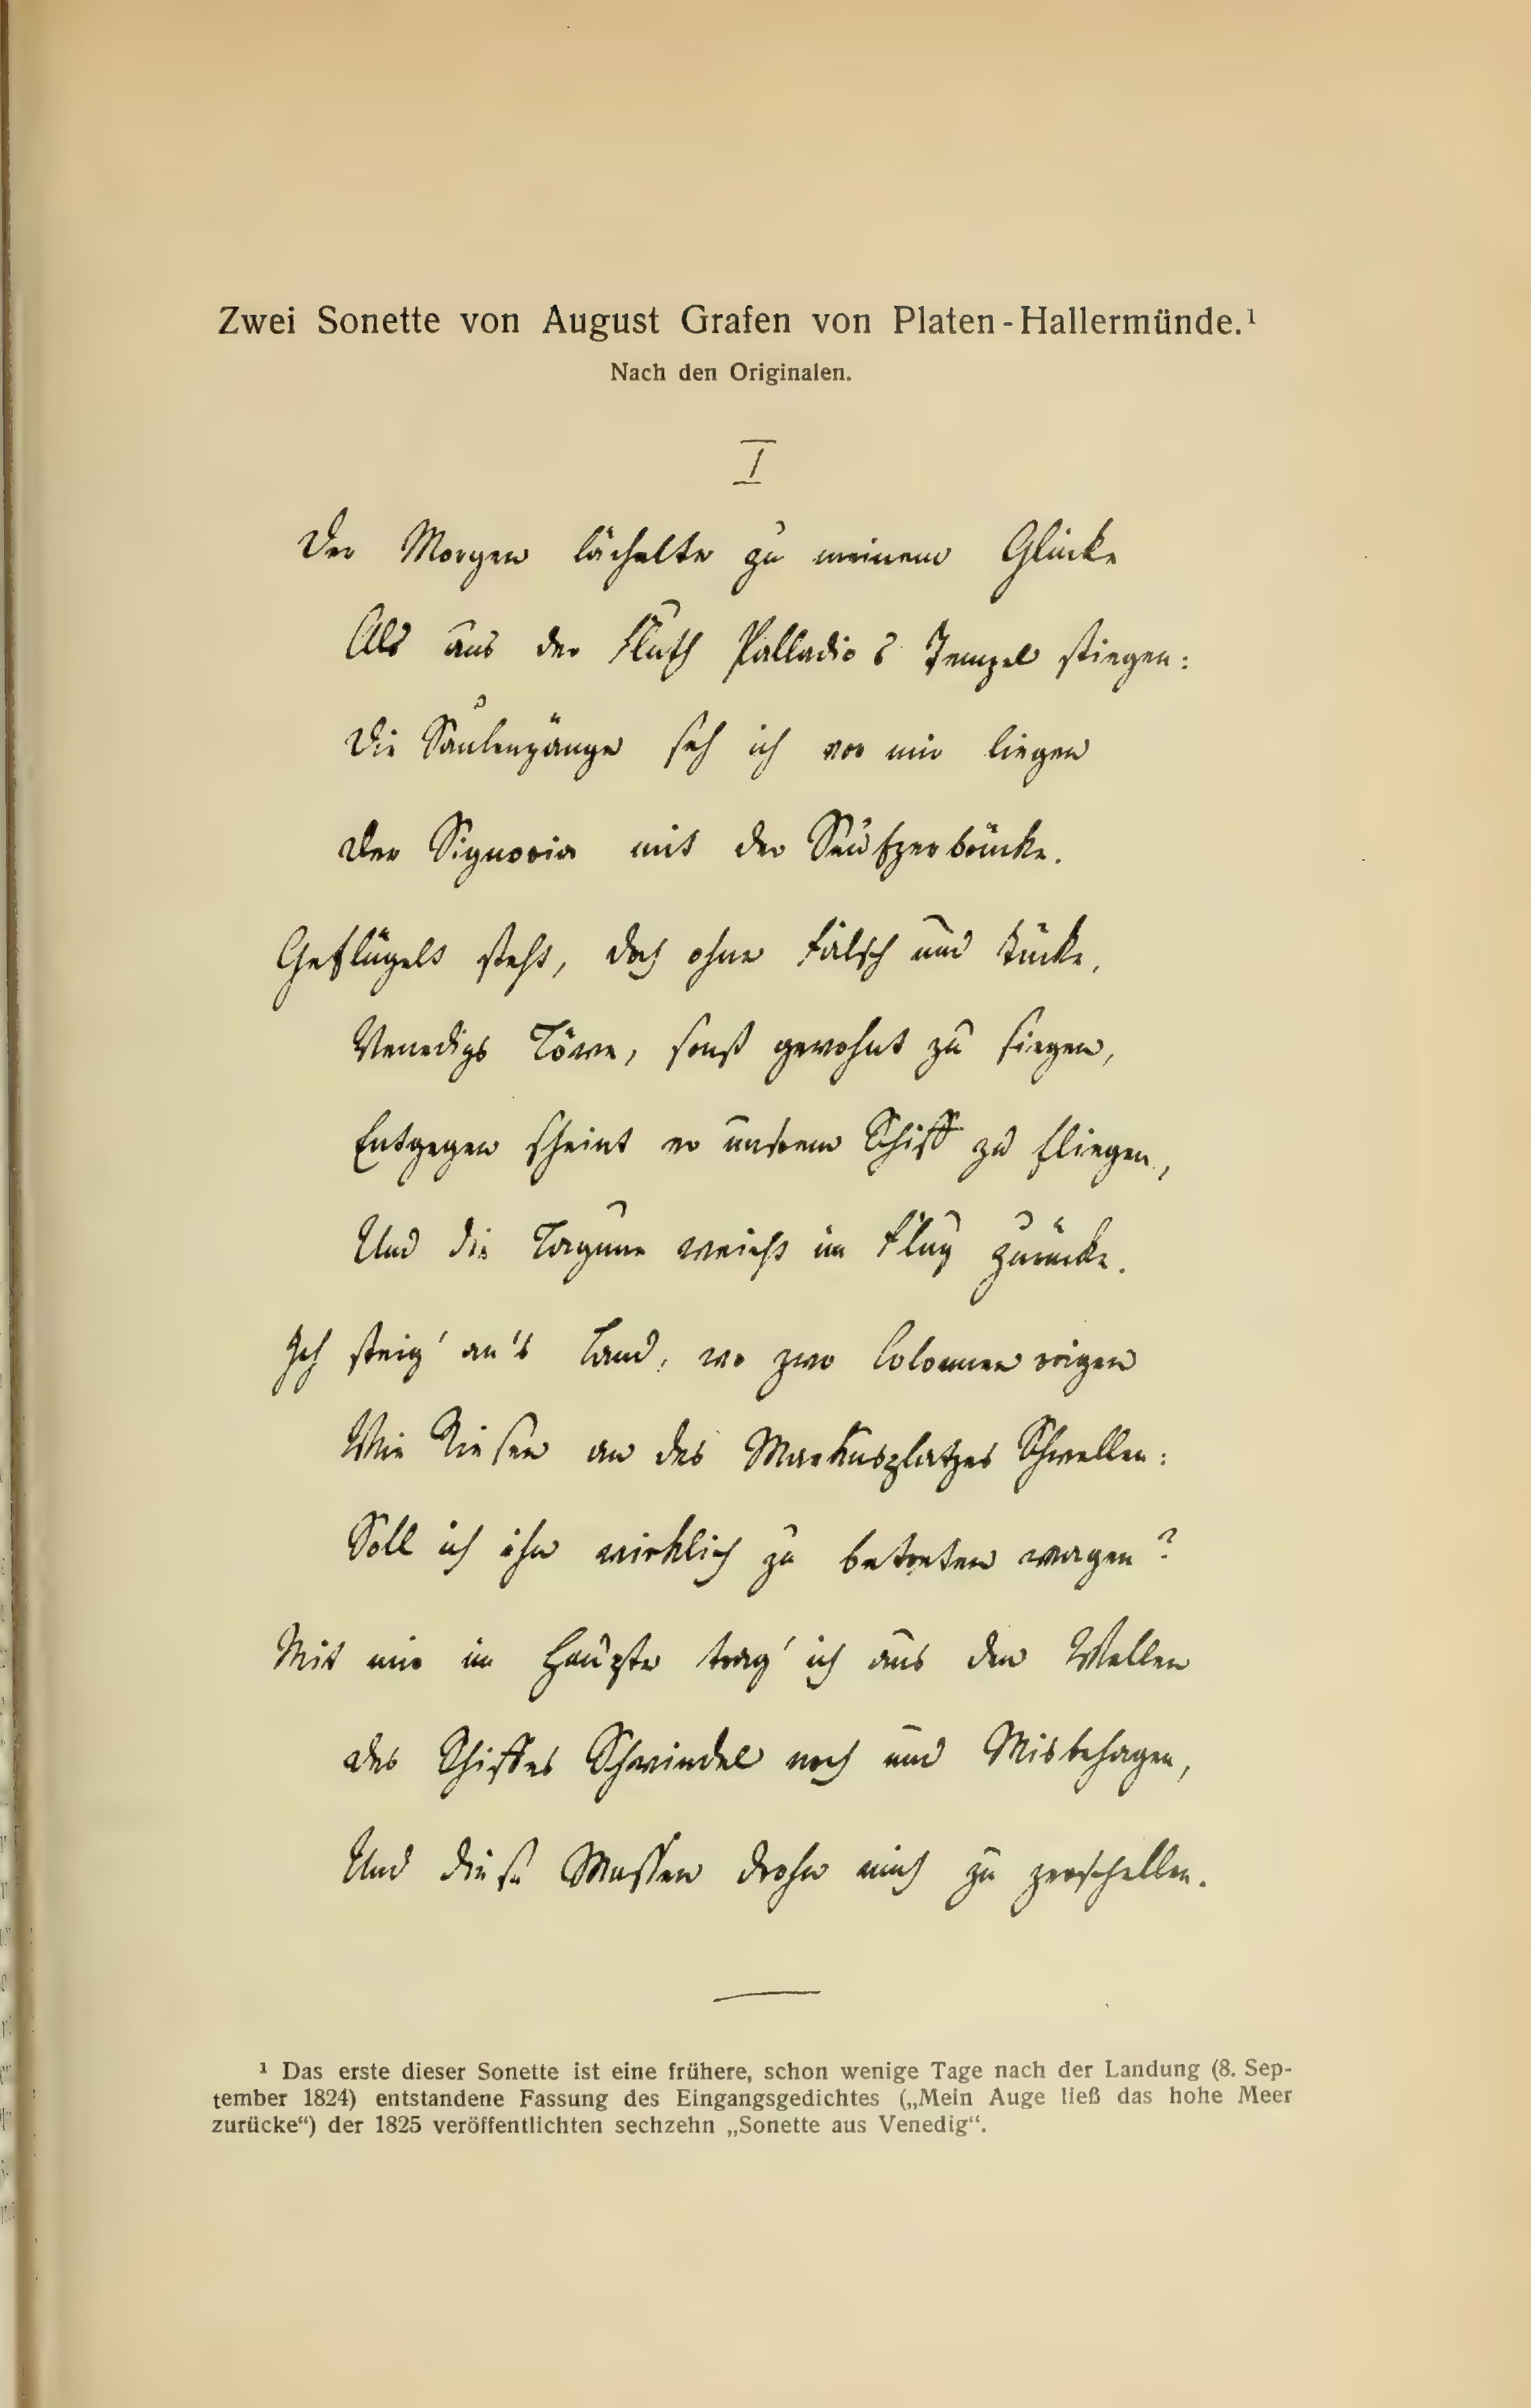 Zwei Sonette von August Grafen von Platen-Hallermünde.¹
Nach den Originalen.
I
Der Morgen lächelte zu meinem Glücke
Als aus der Fluth Palladio's Tempel stiegen:
Die Säulengänge seh ich vor mir liegen
Der Signoria mit der Seufzerbrücke.
Geflügelt steht, doch ohne Falsch und Tücke,
Venedigs Löwe, sonst gewohnt zu siegen,
Entgegen scheint er unserm Schiff zu fliegen,
Und die Lagune weicht im Flug zurücke.
Ich steig' an's Land, wo zwo Colonnen ragen
Wie Riesen an des Markusplatzes Schwellen:
Soll ich ihn wirklich zu betreten wagen?
Mit mir im Haupte trag' ich aus den Wellen
Des Schiffes Schwindel noch und Misbehagen,
Und diese Massen drohn mich zu zerschellen.
¹ Das erste dieser Sonette ist eine frühere, schon wenige Tage nach der Landung (8. Sep-
tember 1824) entstandene Fassung des Eingangsgedichtes („Mein Auge ließ das hohe Meer
zurücke“) der 1825 veröffentlichten sechzehn „Sonette aus Venedig“.